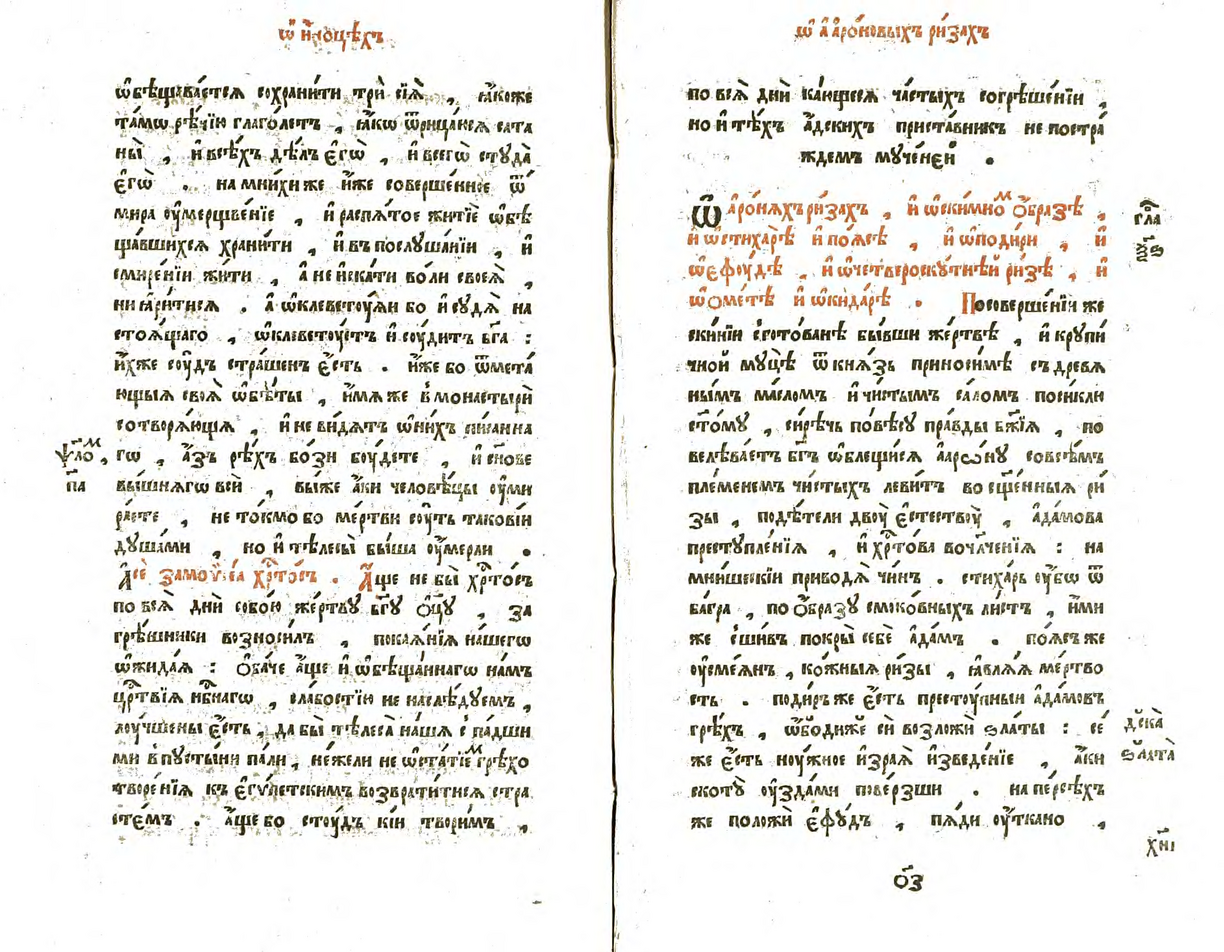 ѡ҆ и҆ноцѣхъ
ѡ҆бѣщава́етсѧ сохрани́ти трѝ сїѧ̀ , ꙗ҆́коже
та́мѡ рѣ́чїю глаго́летъ , ꙗ҆́кѡ ѿрица́юсѧ сата
ны̀ , и҆ всѣ́хъ дѣ́лъ є҆гѡ̀ , и҆ всегѡ̀ стꙋда̀
є҆гѡ̀ . на мни́хи же и҆́же соверше́нное ѿ
мира оу҆мерщвенїе , и҆ распѧ́тое житїѐ ѡ҆бѣ
ща́вшихсѧ храни́ти , и҆ въ послꙋша́нїи , и҆
смире́нїи жити , а҆ не и҆ска́ти во́ли своеѧ̀ ,
ни ꙗ҆ри́тисѧ . а҆ ѡ҆клеветоу́ѧи бо и҆ сꙋдѧ̀ на
стоѧ́щаго , ѡ҆клеветоу́етъ и҆ соу́дитъ бг҃а :
и҆́хже соу́дъ стра́шенъ є҆́сть . и҆́же бо ѿмета́
ющыѧ своѧ̀ ѡ҆бѣ́ты , и҆́мѧ же в монастырѝ
сотворѧ́ющїѧ , и҆ не ви́дѧтъ ѡ҆ ни́хъ писанна
гѡ , а҆́зъ рѣ́хъ бо́зи боу́дете , и҆ сн҃ове
вы́шнѧгѡ всѝ , вы́же а҆́ки человѣ́цы оу҆ми
ра́ете , не то́кмо бо ме́ртви соу́ть такові́и
дꙋша́ми , но и҆ тѣлесы̀ бы́ша оу҆́мерли .
А҆ сѐ замо́ѵсеа хрⷭ҇то́съ . А҆́ще не бы̀ хрⷭ҇то́съ
по всѧ̀ дни̑ собо́ю же́ртвꙋ бг҃ꙋ ѻ҆ц҃ꙋ̀ , за
грѣ́шники возноси́лъ , покаѧ́нїѧ на́шегѡ
ѡ҆жида́ѧ : ѻ҆ба́че а҆́ще и҆ ѡ҆бѣща́ннагѡ на́мъ
црⷭ҇твїѧ нбⷭ҇нагѡ , сла́бостїю не наслѣ́дꙋемъ ,
лоу́чшены є҆́сть , да бы̀ тѣлеса̀ на́шѧ с па́дши
ми в пꙋсты́ни па́ли , не́жели не ѡ҆ста́тїемъ грѣхо
творе́нїѧ къ є҆гѵ́петскимъ возврати́тисѧ стра
сте́мъ . а҆́ще бо стоу́дъ кі́и твори́мъ ,
ѱало́мъ ,
п҃а
ѡ҆ а҆аро́новыхъ ри́захъ
по всѧ̀ дни̑ ка́ющесѧ ча́стыхъ согрѣше́нїи ,
но и҆ тѣ́хъ а҆́дскихъ приста́вникъ не постра́
ждемъ мꙋче́нєи .
Ѡ҆ аро́нѧхъ ри́захъ , и҆ ѡ҆ ски́мномъ ѻ҆́бразѣ ,
и҆ ѡ҆ стиха́рѣ и҆ по́ѧсѣ , и҆ ѡ҆ поди́ри , и҆
ѡ҆ є҆фоу́дѣ , и҆ ѡ҆ четвероскꙋ́тнѣй ри́зѣ , и҆
ѡ҆ ѻме́тѣ и҆ ѡ҆ кида́рѣ . По соверше́нїи же
ски́нїи сготованѣ бы́вши же́ртвѣ , и҆ крꙋпи́
чной мꙋцѣ̀ ѿ кнѧ́зь приноси́мѣ съ древѧ
ны́мъ ма́сломъ и҆ чи́стымъ са́ломъ посикли
ст҃о́мꙋ , си́рѣчь по вѣ́сꙋ пра́вды бж҃їѧ , по
велѣва́етъ бг҃ъ ѡ҆блещи́сѧ а҆арѡ́нꙋ со всѣ́мъ
пле́менемъ чи́стыхъ леви́тъ во сщ҃е́нныѧ ри́
зы , подѣ́тели двоꙋ̀ є҆стествоꙋ̀ , а҆да́мова
престꙋпле́нїѧ , и҆ хрⷭ҇то́ва вочл҃че́нїѧ : на
мни́шескїи приводѧ̀ чи́нъ . стиха́рь оу҆́бѡ ѿ
ба́гра , по ѻ҆́бразꙋ смоко́вныхъ ли́стъ , и҆́ми
же сши́въ покры̀ себѐ а҆да́мъ . по́ѧсъ же
оу҆смѧ́нъ , ко́жныѧ ри́зы , ꙗ҆влѧ́ѧ ме́ртво
сть . поди́ръ же є҆́сть престоу́пныи а҆да́мовъ
грѣ́хъ , ѡ҆́бодиже є҆й возложѝ ѕла́ты : се́
же є҆́сть ноу́жное и҆з̾ра́ѧ и҆зведе́нїе , а҆́ки
скотꙋ̀ оу҆зда́ми пове́рзши . на пе́рсѣхъ
же положѝ є҆фꙋ́дъ , пѧ́ди оу҆́ткано ,
гла
дска̀
ѕлата̀
хн҃і
ѻ҃з